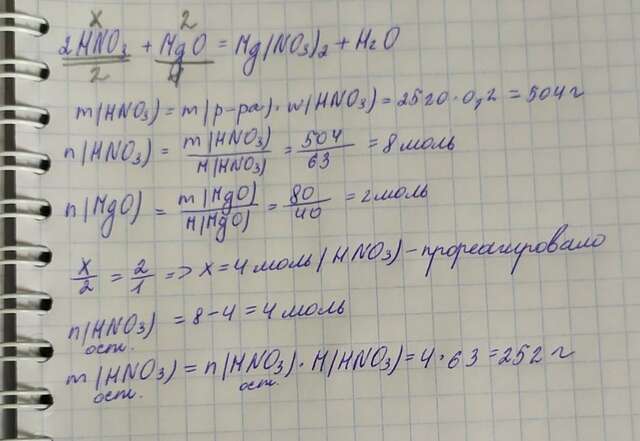 x 2
2HNO₃ + MgO = Mg(NO₃)₂ + H₂O
2 1
m(HNO₃) = m(р-ра) · w(HNO₃) = 2520 · 0,2 = 504 г
n(HNO₃) = m(HNO₃)/M(HNO₃) = 504/63 = 8 моль
n(MgO) = m(MgO)/M(MgO) = 80/40 = 2 моль
x/2 = 2/1 => x = 4 моль (HNO₃) – прореагировало
n(HNO₃) ост. = 8 - 4 = 4 моль
m(HNO₃) ост. = n(HNO₃) ост. · M(HNO₃) = 4 · 63 = 252 г